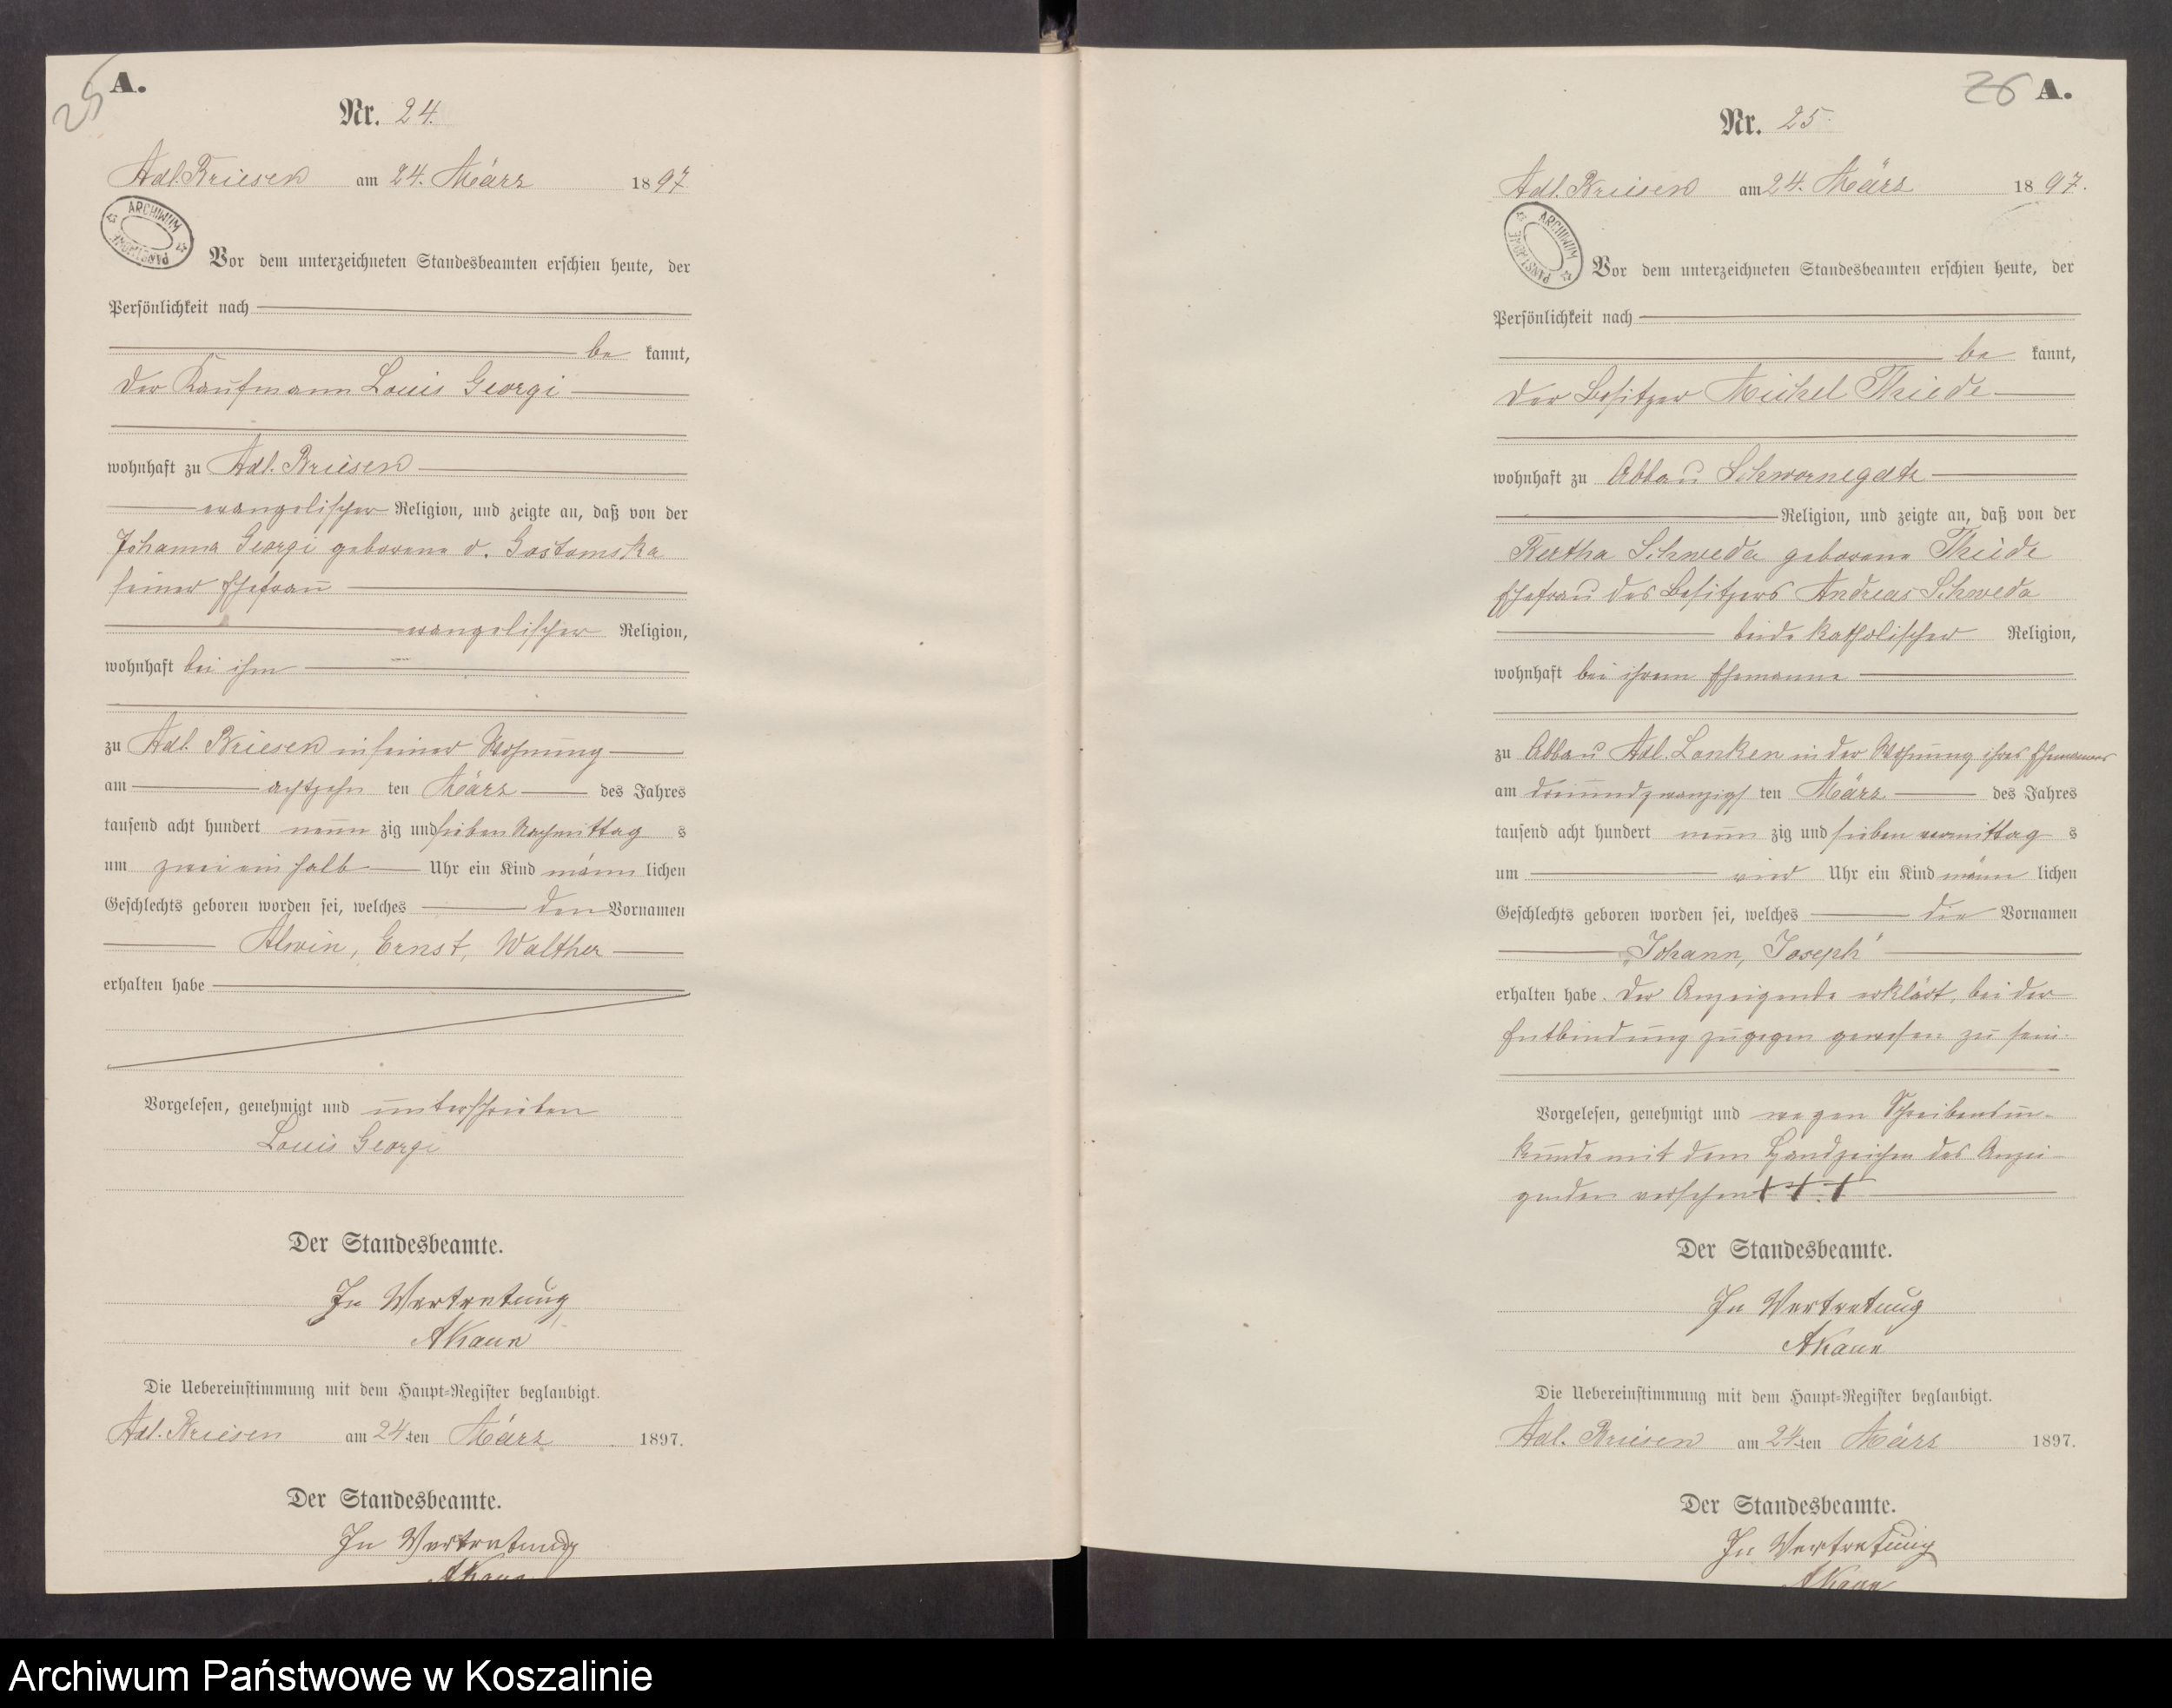 25
A.
Nr. 24.
Adl. Briesen am 24. März 1897
ARCHIWUM PAŃSTWOWE
Vor dem unterzeichneten Standesbeamten erschien heute, der
Persönlichkeit nach
be kannt,
der Kaufmann Louis Georgi
wohnhaft zu Adl. Briesen
evangelischer Religion, und zeigte an, daß von der
Johanna Georgi geborene v. Gostomska
seiner Ehefrau
evangelischer Religion,
wohnhaft bei ihm
zu Adl. Briesen in seiner Wohnung
am achtzehn ten März des Jahres
tausend acht hundert neun zig und sieben Nachmittag s
um zwei ein halb Uhr ein Kind männ lichen
Geschlechts geboren worden sei, welches den Vornamen
Alwin, Ernst, Walther
erhalten habe
Vorgelesen, genehmigt und unterschrieben
Louis Georgi
Der Standesbeamte.
In Vertretung
AKaun
Die Uebereinstimmung mit dem Haupt-Register beglaubigt.
Adl. Briesen am 24 ten März 1897.
Der Standesbeamte.
In Vertretung
AKaun
26 A.
Nr. 25
Adl. Briesen am 24. März 1897.
ARCHIWUM PAŃSTWOWE
Vor dem unterzeichneten Standesbeamten erschien heute, der
Persönlichkeit nach
be kannt,
der Besitzer Michel Thiede
wohnhaft zu Abbau Schwornegatz
Religion, und zeigte an, daß von der
Bertha Schweda geborene Thiede
Ehefrau des Besitzers Andreas Schweda
beide katholischer Religion,
wohnhaft bei ihrem Ehemanne
zu Abbau Adl. Lanken in der Wohnung ihres Ehemannes
am dreiundzwanzigs ten März des Jahres
tausend acht hundert neun zig und sieben vormittag s
um vier Uhr ein Kind männ lichen
Geschlechts geboren worden sei, welches die Vornamen
Johann, Joseph
erhalten habe. Der Anzeigende erklärt, bei der
Entbindung zugegen gewesen zu sein.
Vorgelesen, genehmigt und wegen Schreibensun-
kunde mit dem Handzeichen des Anzei-
genden versehen + + +
Der Standesbeamte.
In Vertretung
AKaun
Die Uebereinstimmung mit dem Haupt-Register beglaubigt.
Adl. Briesen am 24 ten März 1897.
Der Standesbeamte.
In Vertretung
AKaun
Archiwum Państwowe w Koszalinie